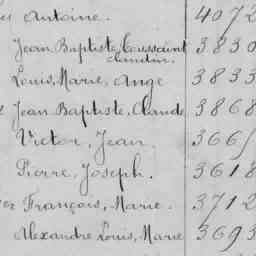 Antoine. 4072
Jean Baptiste Toussaint 3830
Claudin.
Louis, Marie, Ange 3833
Jean Baptiste, Claude 3868
Victor, Jean. 3665
Pierre, Joseph. 3618
François, Marie. 3712
Alexandre Louis, Marie 3693